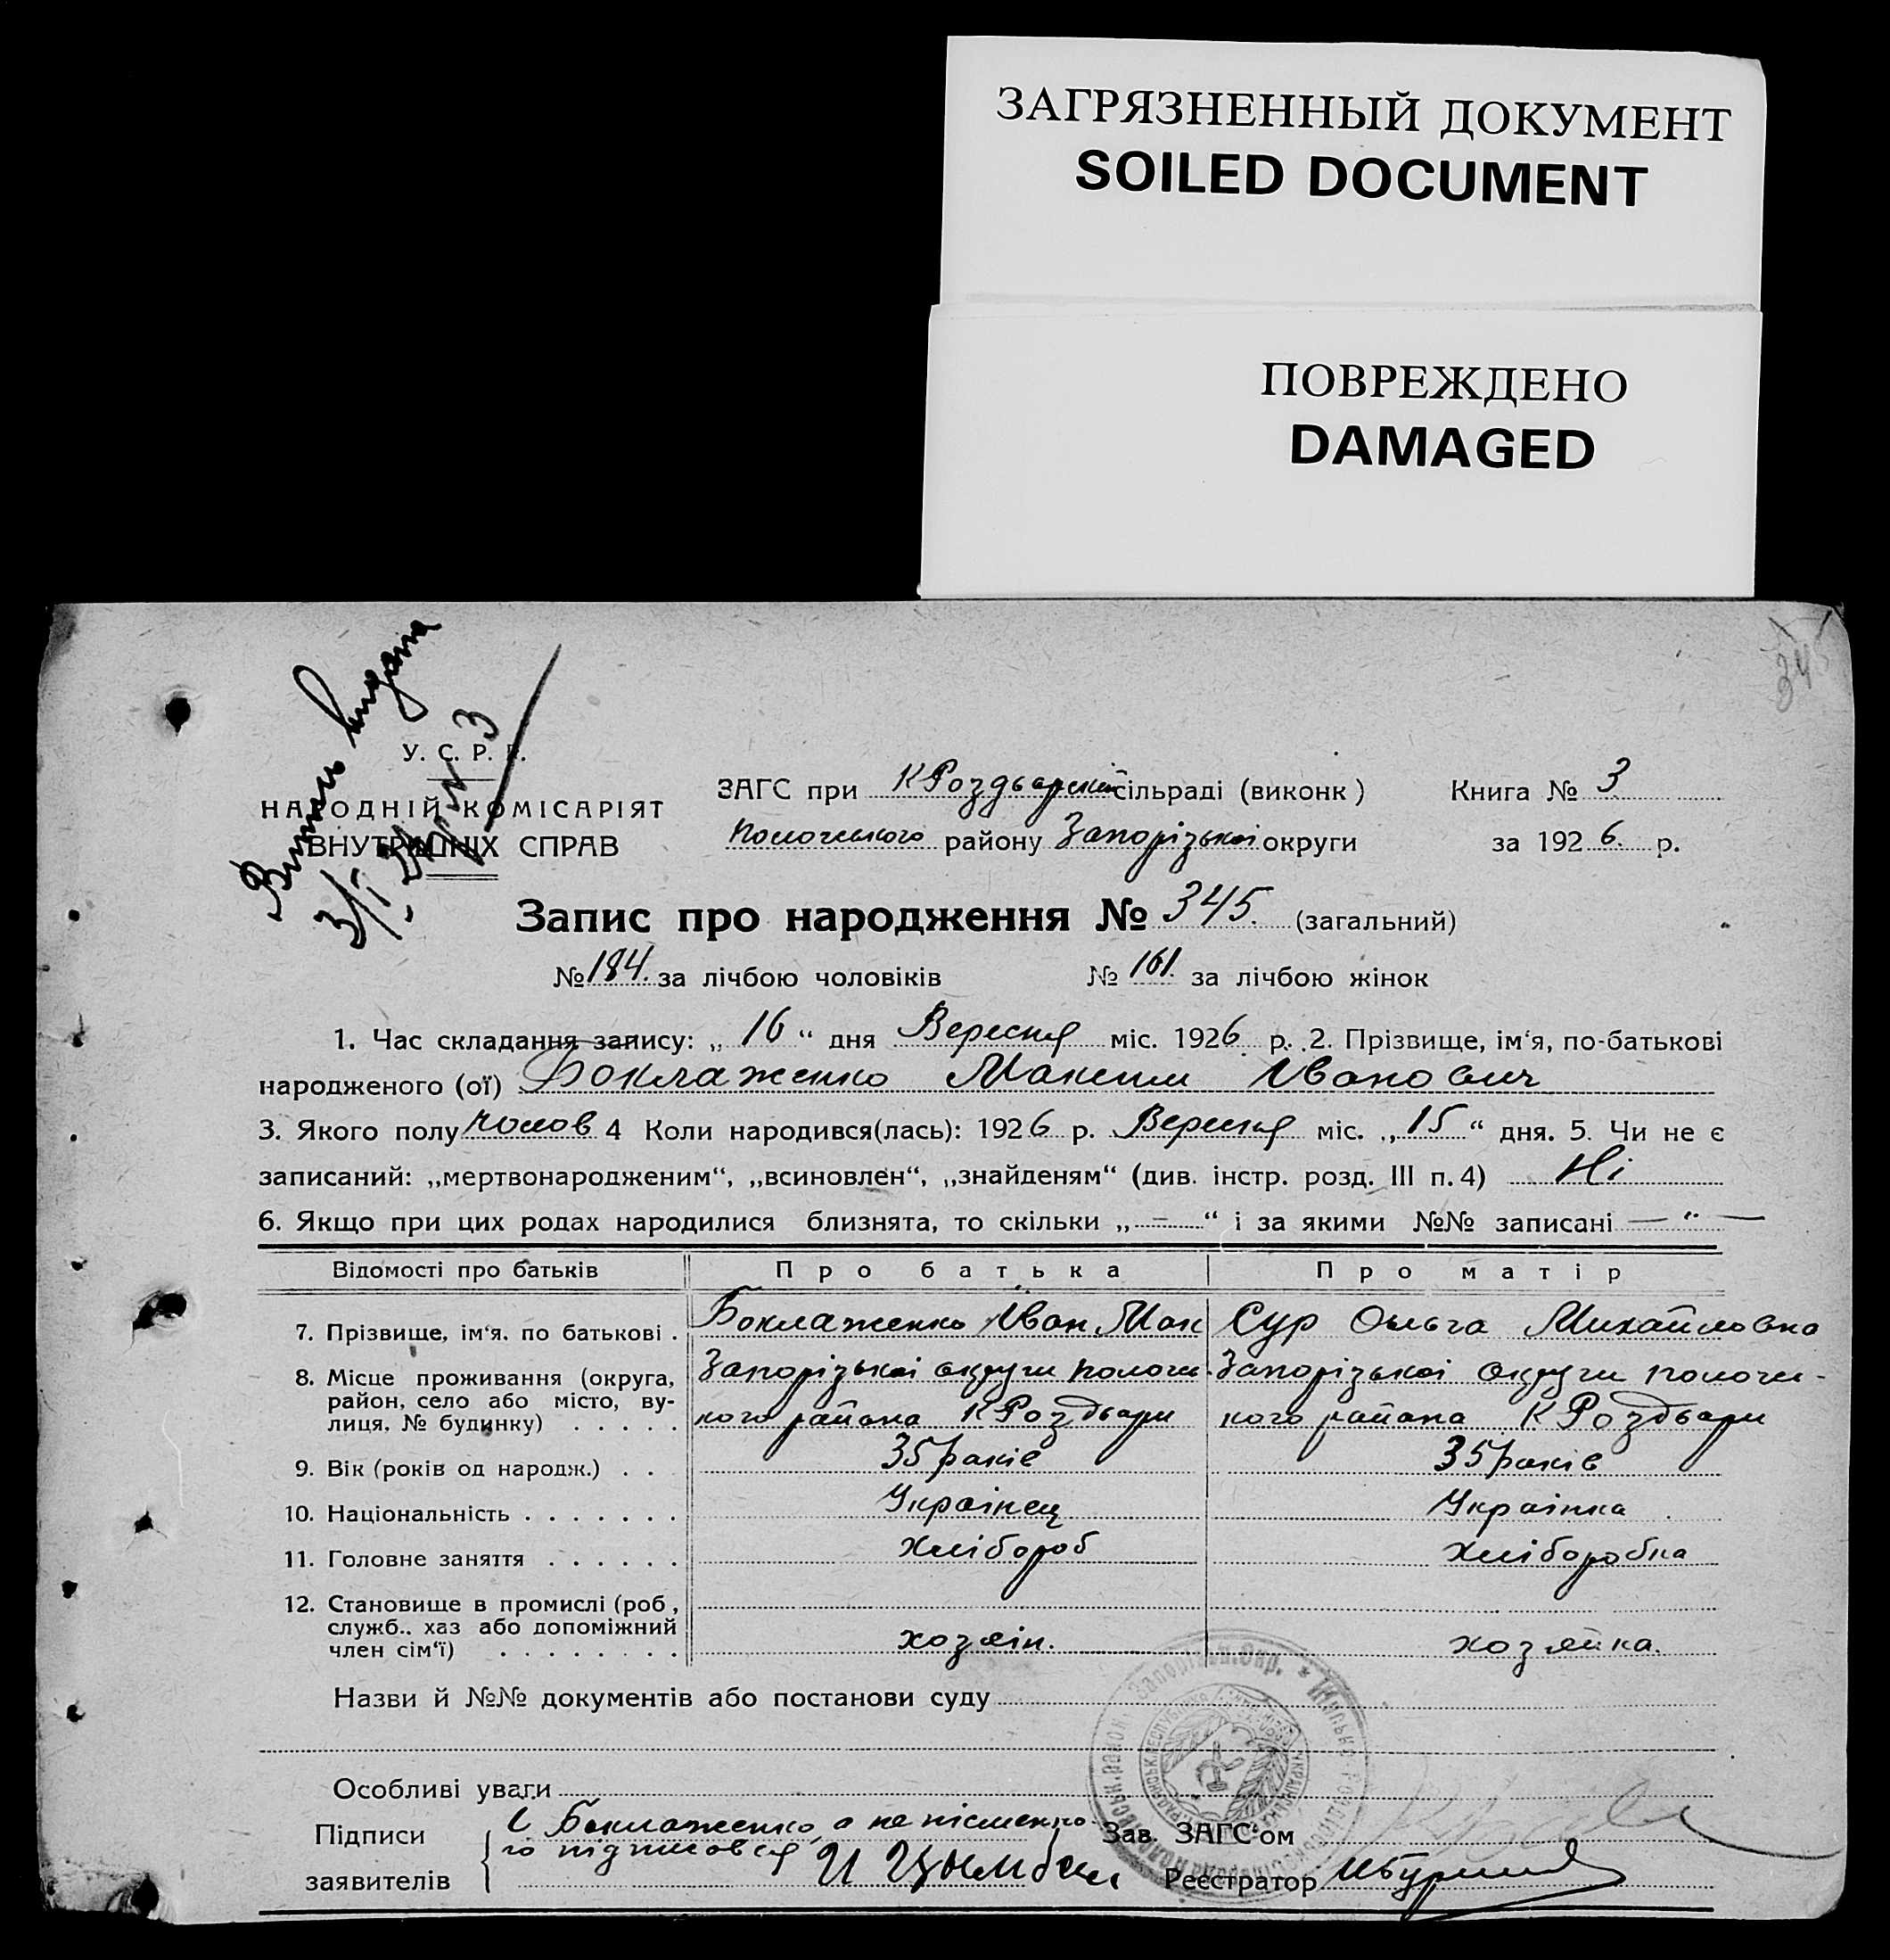 ЗАГРЯЗНЕННЫЙ ДОКУМЕНТ
SOILED DOCUMENT
ПОВРЕЖДЕНО
DAMAGED
345
видана
У. С. Р. Р.
НАРОДНІЙ КОМІСАРІЯТ
ВНУТРІШНІХ СПРАВ
ЗАГС при К Роздьорській сільраді (виконк) Книга № 3
Пологського району Запорізькоі округи за 1926 р.
Запис про народження № 345. (загальний)
№ 184. за лічбою чоловіків № 161. за лічбою жінок
1. Час складання запису: „ 16 “ дня Вересня міс. 1926 р. 2. Прізвище, ім‘я, по-батькові
народженого (ої) Боклаженко Максим Іванович
3. Якого полу чолов 4 Коли народився(лась): 1926 р. Вересня міс. „ 15 “ дня. 5. Чи не є
записаний: „мертвонародженим“, „всиновлен“, „знайденям“ (див. інстр. розд. III п. 4) Ні
6. Якщо при цих родах народилися близнята, то скільки „ – “ і за якими №№ записані — “ —
Відомості про батьків Про батька Про матір
7. Прізвище, ім‘я, по батькові . Боклаженко Іван Мак Сур Ольга Михайловна
8. Місце проживання (округа, Запорізькоі округи Пологи- Запорізькоі округи Пологи-
район, село або місто, ву-
лиця, № будинку) . . . . . кого района К Роздьори кого района К Роздьори
9. Вік (років од народж.) . . 35 раків 35 раків
10. Національність . . . . . . . Украінец Украінка
11. Головне заняття . . . . . . Хлібороб Хліборобка
12. Становище в промислі (роб,
служб.. хаз або допоміжний
член сім‘ї) . . . . . . . . хозяін. хозяйка.
Назви й №№ документів або постанови суду
Особливі уваги
Підписи Боклаженко, а не писменно- Зав. ЗАГС‘ом
го підписовся
заявителів Реєстратор